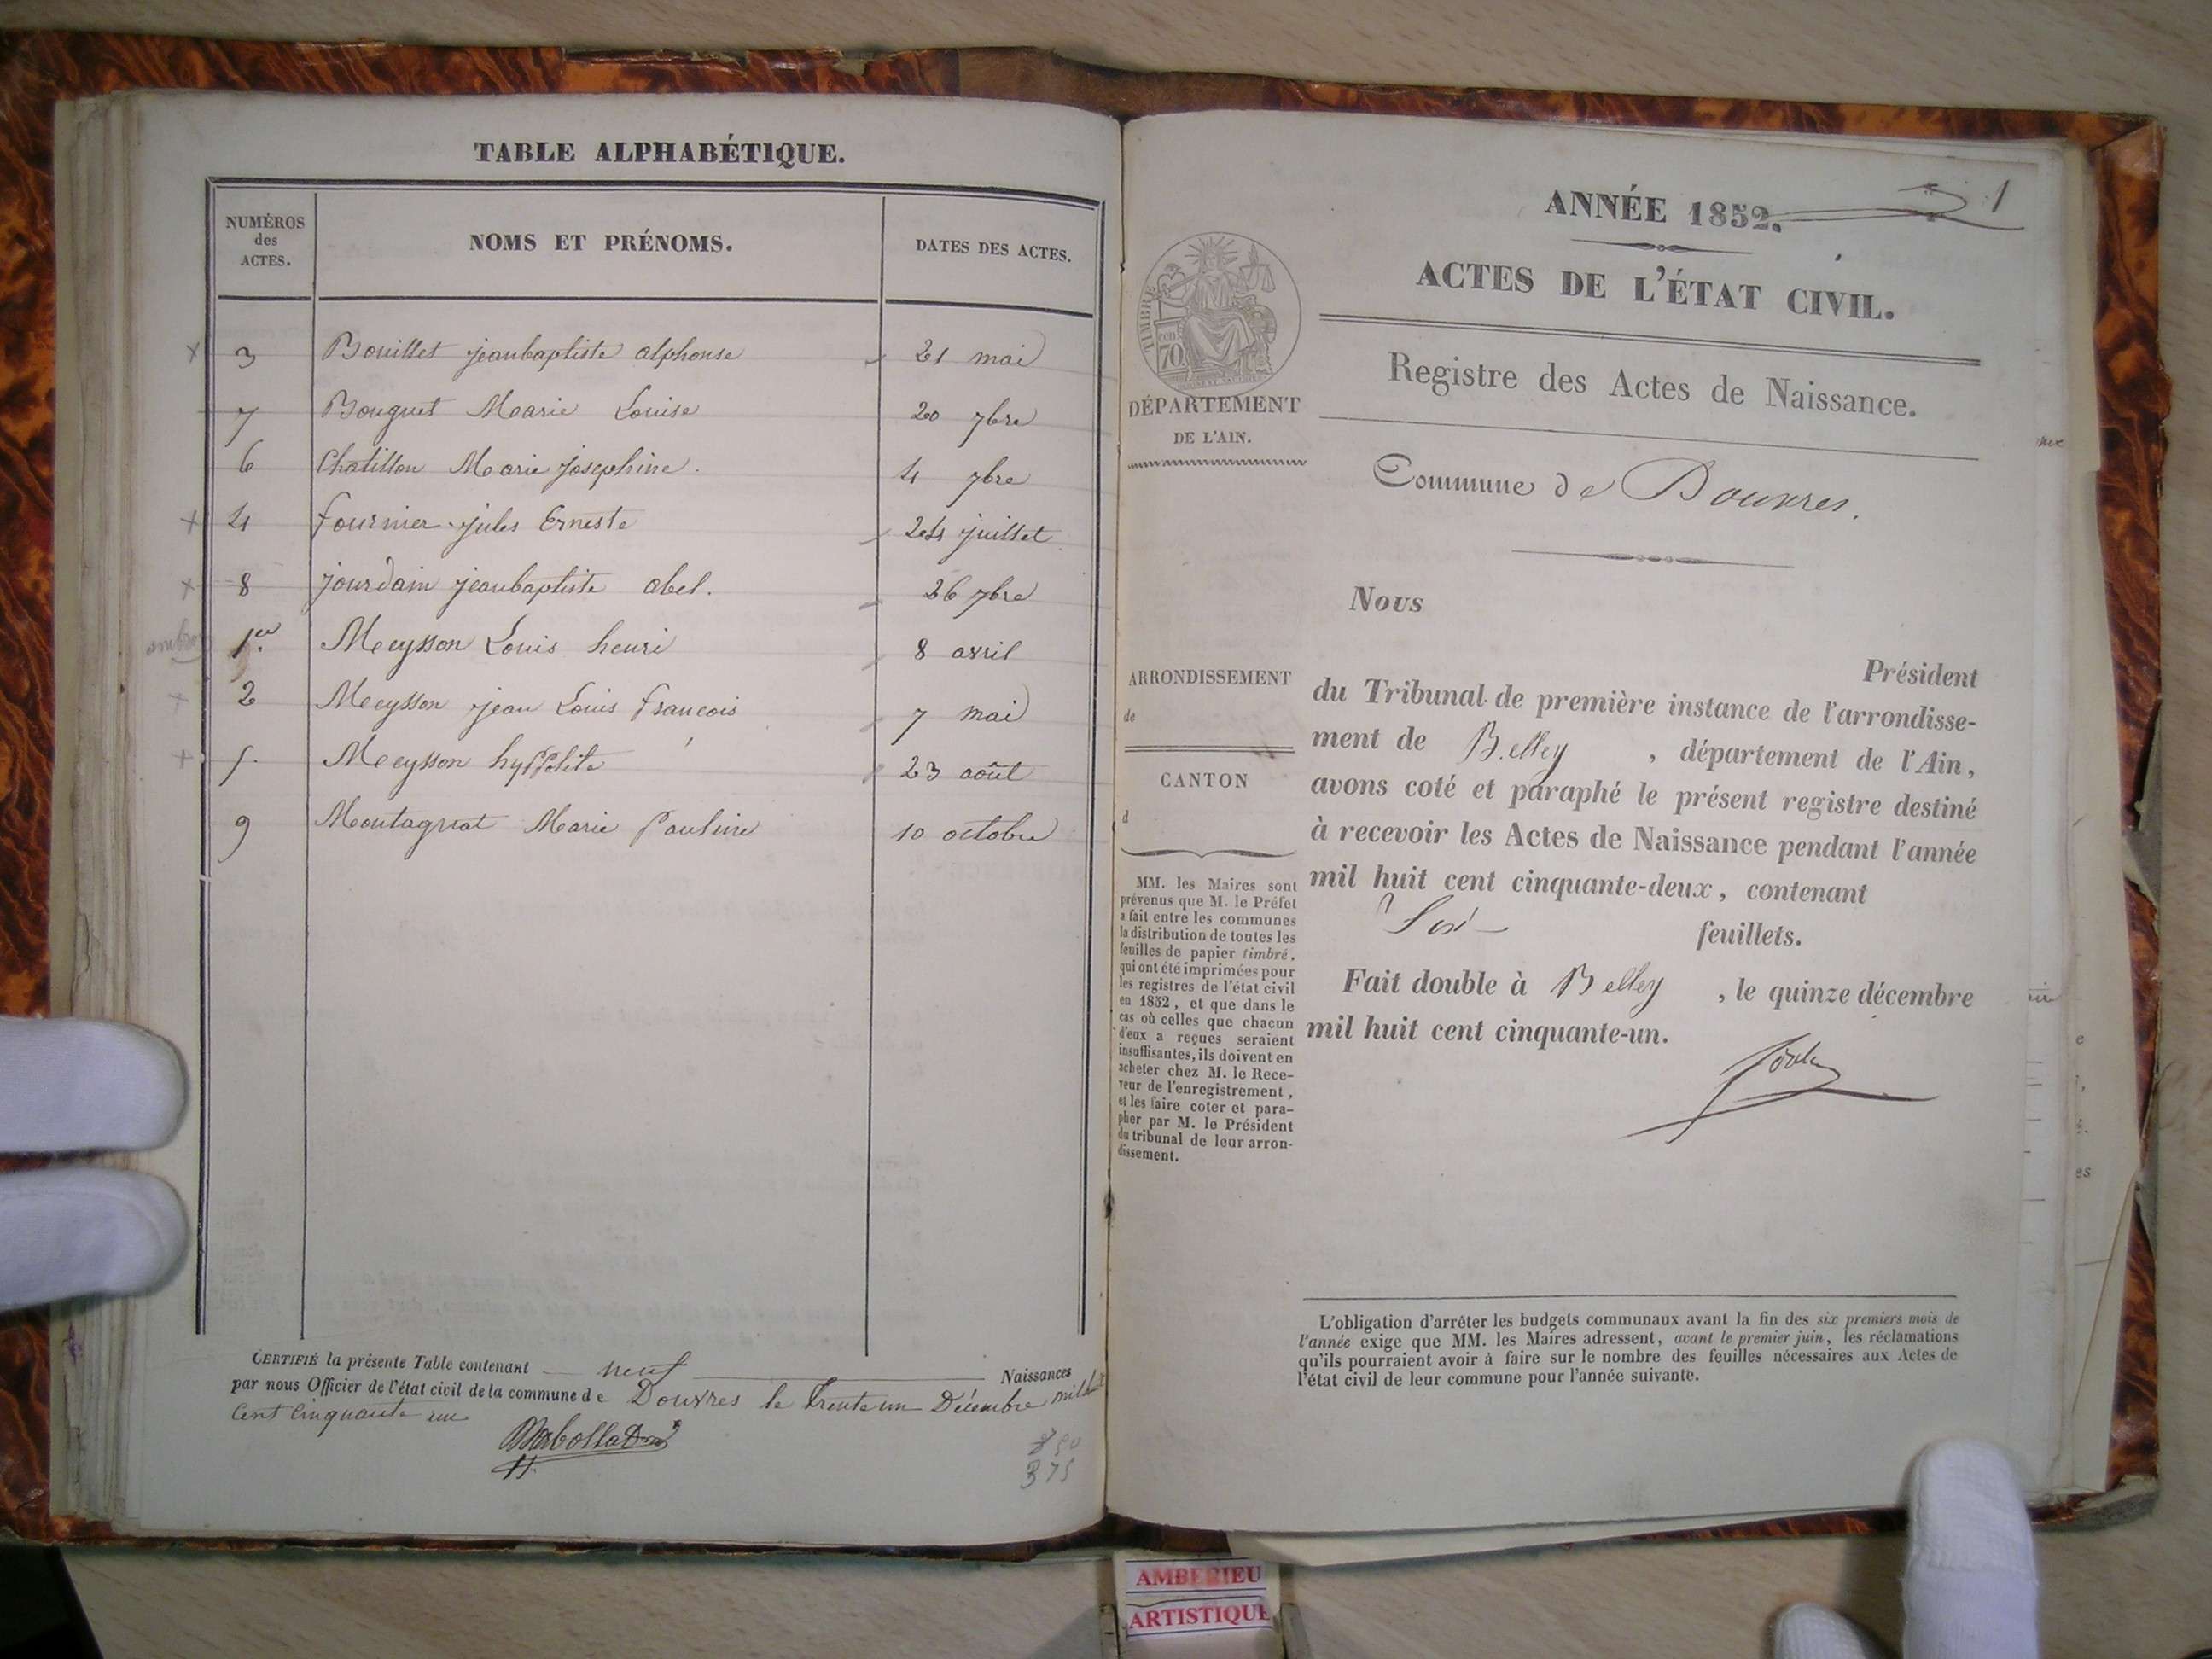 TABLE ALPHABÉTIQUE.
NUMÉROS des ACTES.
NOMS ET PRÉNOMS.
DATES DES ACTES.
3 Bouillet jeanbaptiste alphonse 21 mai
7 Bouguet Marie Louise 20 7bre
6 Chatillon Marie josephine. 4 7bre
4 fournier jules Erneste 24 juillet
8 jourdain jeanbaptiste abel. 26 7bre
1er. Meysson Louis henri 8 avril
2 Meysson jean Louis francois 7 mai
5. Meysson hyppolite 23 août
9 Montagnat Marie Pauline 10 octobre
CERTIFIÉ la présente Table contenant neuf Naissances
par nous Officier de l'état civil de la commune de Douvres le trente un Décembre mil huit
Cent Cinquante un
850
375
1
ANNÉE 1852.
ACTES DE L'ÉTAT CIVIL.
Registre des Actes de Naissance.
TIMBRE
70
DÉPARTEMENT
DE L'AIN.
Commune de Douvres.
Nous
Président
ARRONDISSEMENT
de
CANTON
d
du Tribunal de première instance de l'arrondisse-
ment de Belley , département de l'Ain,
avons coté et paraphé le présent registre destiné
à recevoir les Actes de Naissance pendant l'année
mil huit cent cinquante-deux, contenant
Six feuillets.
Fait double à Belley , le quinze décembre
mil huit cent cinquante-un.
MM. les Maires sont
prévenus que M. le Préfet
a fait entre les communes
la distribution de toutes les
feuilles de papier timbré,
qui ont été imprimées pour
les registres de l'état civil
en 1852, et que dans le
cas où celles que chacun
d'eux a reçues seraient
insuffisantes, ils doivent en
acheter chez M. le Rece-
veur de l'enregistrement,
et les faire coter et para-
pher par M. le Président
du tribunal de leur arron-
dissement.
L'obligation d'arrêter les budgets communaux avant la fin des six premiers mois de
l'année exige que MM. les Maires adressent, avant le premier juin, les réclamations
qu'ils pourraient avoir à faire sur le nombre des feuilles nécessaires aux Actes de
l'état civil de leur commune pour l'année suivante.
AMBERIEU
ARTISTIQUE